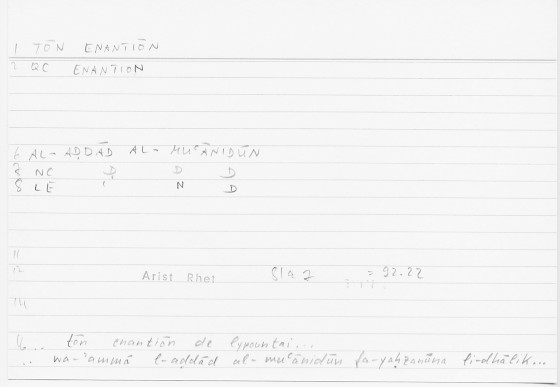 1 TŌN ENANTIŌN
2 QC ENANTION
6 AL-AḌDĀD AL-MUʿĀNIDŪN
7 NC Ḍ D D
8 LE ʾ N D
11
12 Arist Rhet 81a7 = 92.22
14
16... tōn enantiōn de lypountai...
.. wa-ʾammā l-aḍdād al-muʿānidūn fa-yaḥzanūna li-dhālik...